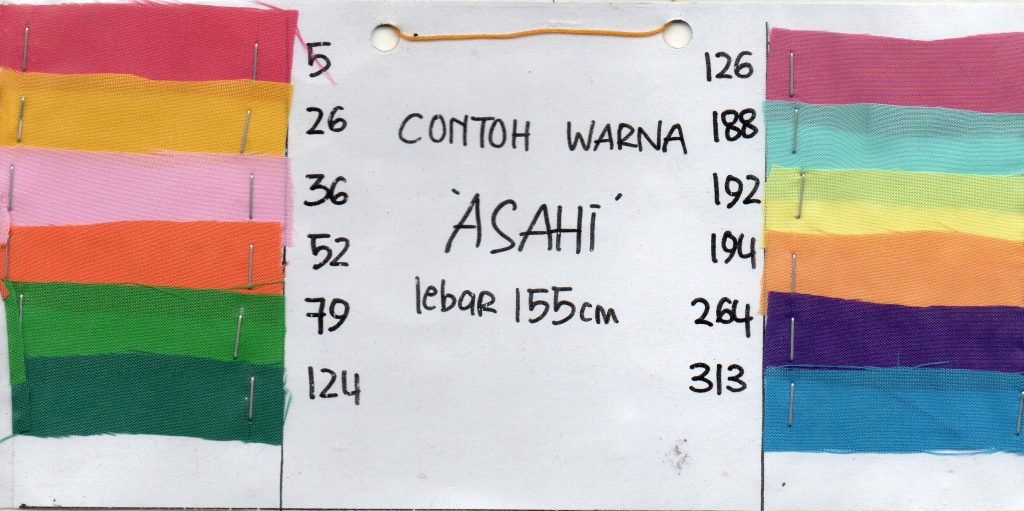 5
26
36
52
79
124
CONTOH WARNA
'ASAHi'
lebar 155cm
126
188
192
194
264
313